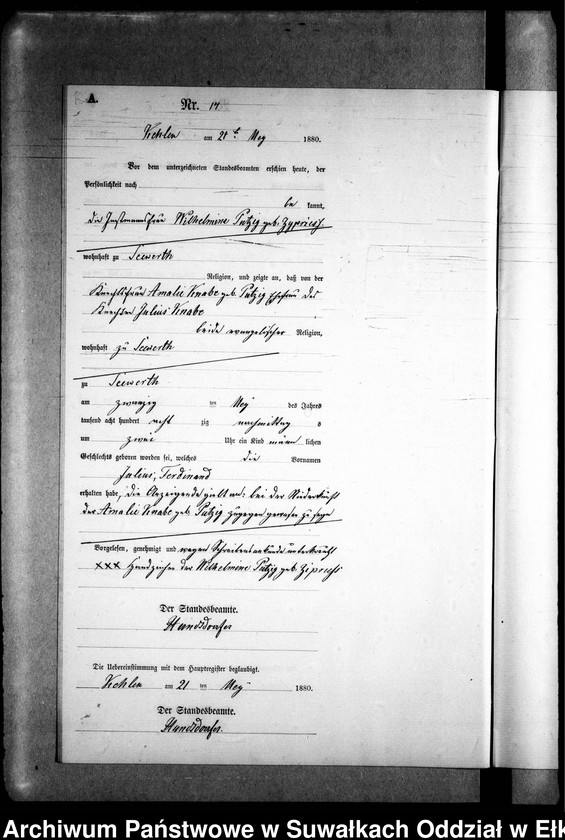 A.
Nr. 17
am 21 t. May 1880.
Vor dem unterzeichneten Standesbeamten erschien heute, der
Persönlichkeit nach
be kannt,
die Instmannsfrau Wilhelmine Putzig geb.
wohnhaft zu Seewerth
Religion, und zeigte an, daß von der
Knechtsfrau Amalie Knabe geb. Putzig Ehefrau des
Knechten Julius Knabe
beide evangelischer Religion,
wohnhaft zu Seewerth
zu Seewerth
am zwanzig ten May des Jahres
tausend acht hundert acht zig nachmittag s
um zwei Uhr ein Kind männ lichen
Geschlechts geboren worden sei, welches die Vornamen
Julius, Ferdinand
erhalten habe, die Anzeigende gibt an: bei der Niederkunft
der Amalie Knabe geb. Putzig zugegen gewesen zu seyn
Vorgelesen, genehmigt und wegen Schreibensunkunde unterkreuzt
xxx Handzeichen der Wilhelmine Putzig geb.
Der Standesbeamte.
Die Uebereinstimmung mit dem Hauptregister beglaubigt.
am 21 ten May 1880.
Der Standesbeamte.
Archiwum Państwowe w Suwałkach Oddział w Ełk